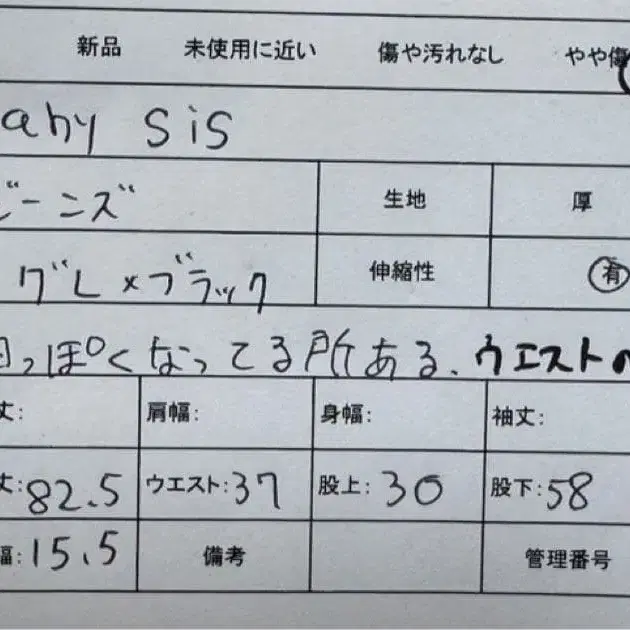 新品 未使用に近い 傷や汚れなし やや傷
any sis
ビーンズ 生地 厚
グレ×ブラック 伸縮性 有
っぽくなってる所ある、ウエストの
丈: 肩幅: 身幅: 袖丈:
丈:82.5 ウエスト:37 股上:30 股下:58
幅:15.5 備考 管理番号